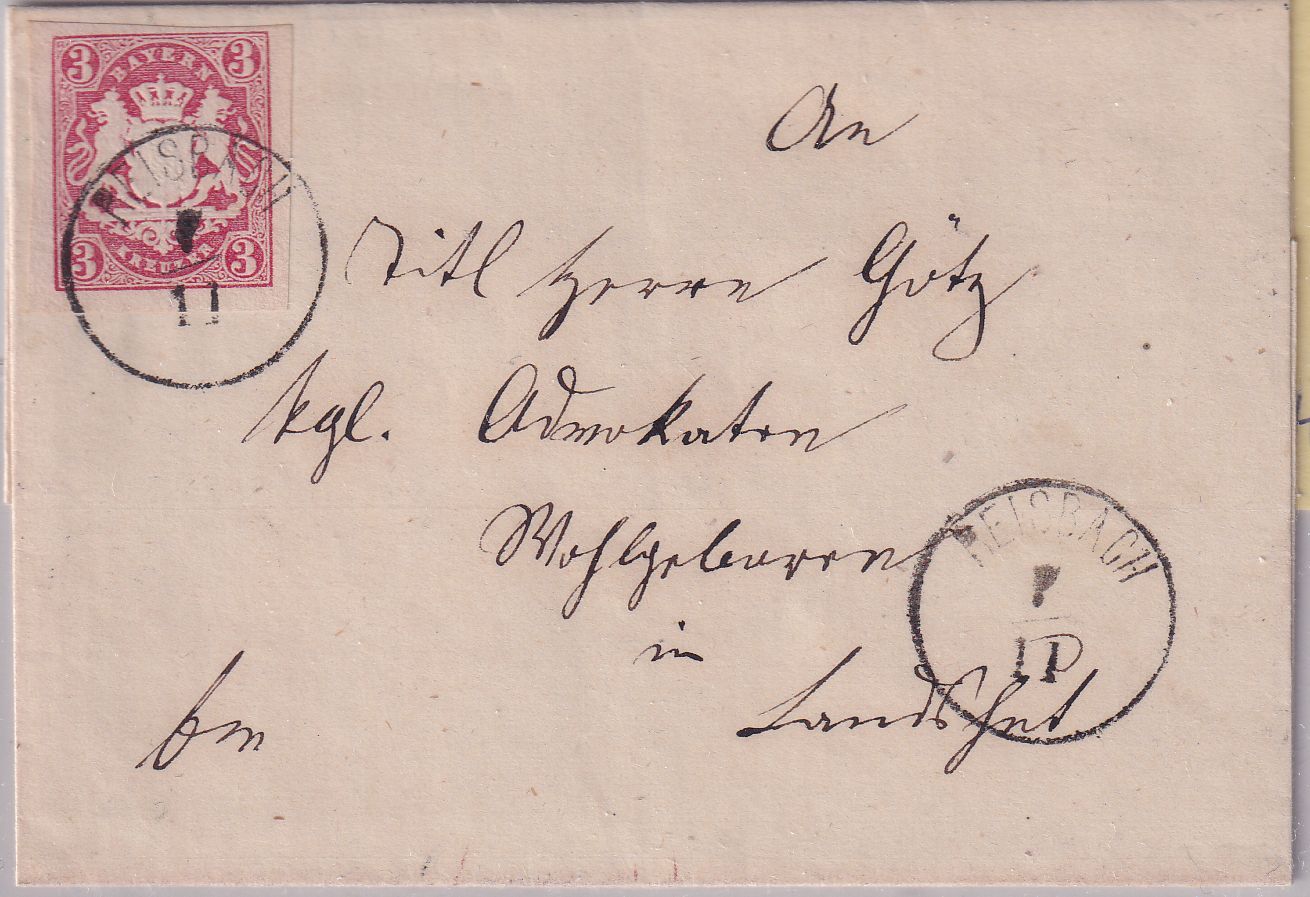 3 3
BAYERN
KREUZER
3 3
REISBACH
11
An
Titl Herrn Götz
kgl. Advokaten
Wohlgeboren
in
Landshut
REISBACH
11